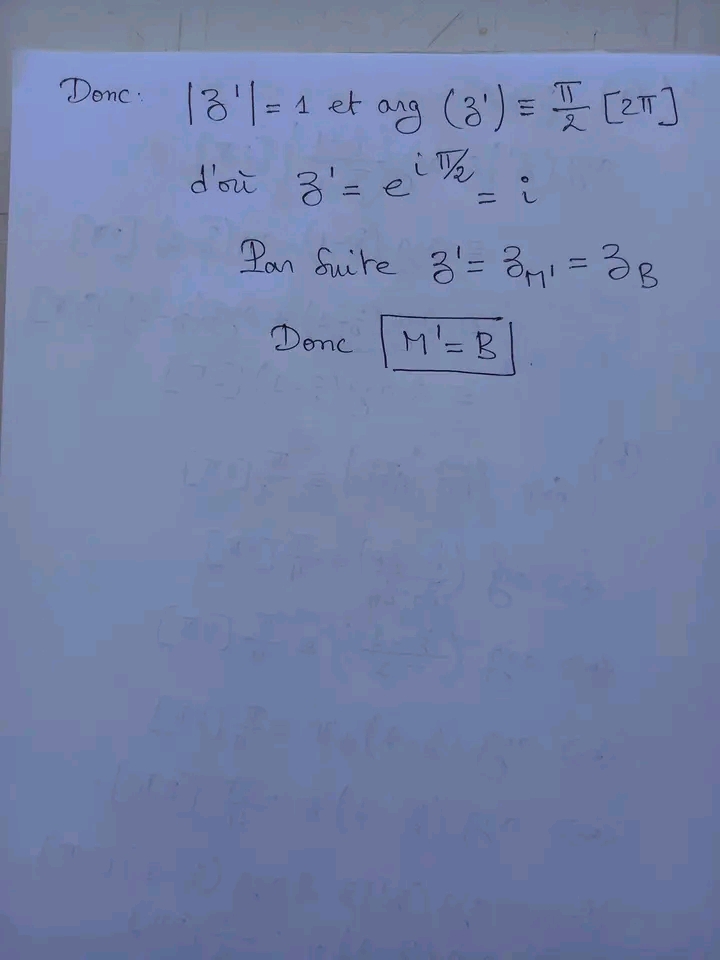 Donc: |z'| = 1 et arg (z') ≡ π/2 [2π]
d'où z' = e^{iπ/2} = i
Par suite z' = z_{M'} = z_B
Donc M' = B.